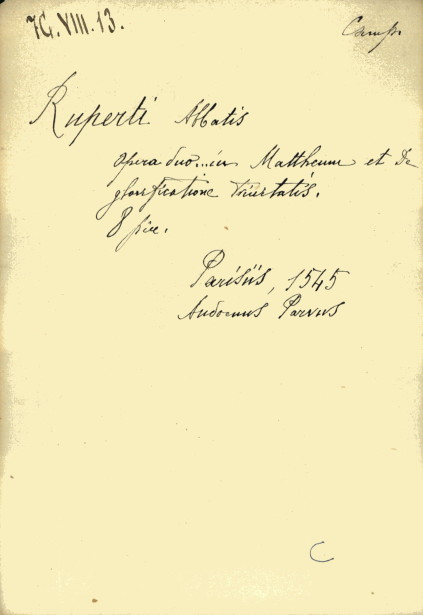 7G.VIII.13.
Camp.
Ruperti Abbatis
opera duo...in Mattheum et De
glorificatione Trinitatis.
8 sive.
Parisiis, 1545
Audoenus Parvus
C